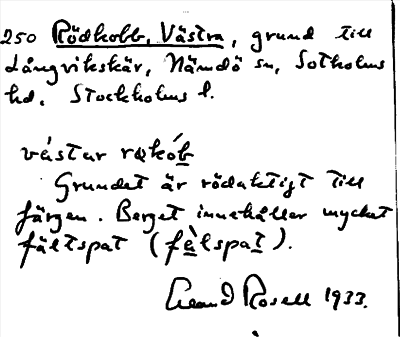 250 Rödkobb, Västra, grund till
Långvikskär, Nämdö sn, Sotholms
hd. Stockholms l.
västar røkób
Grundet är rödaktigt till
färgen. Berget innehåller mycket
fältspat (fèlspat).
Rosell 1933.